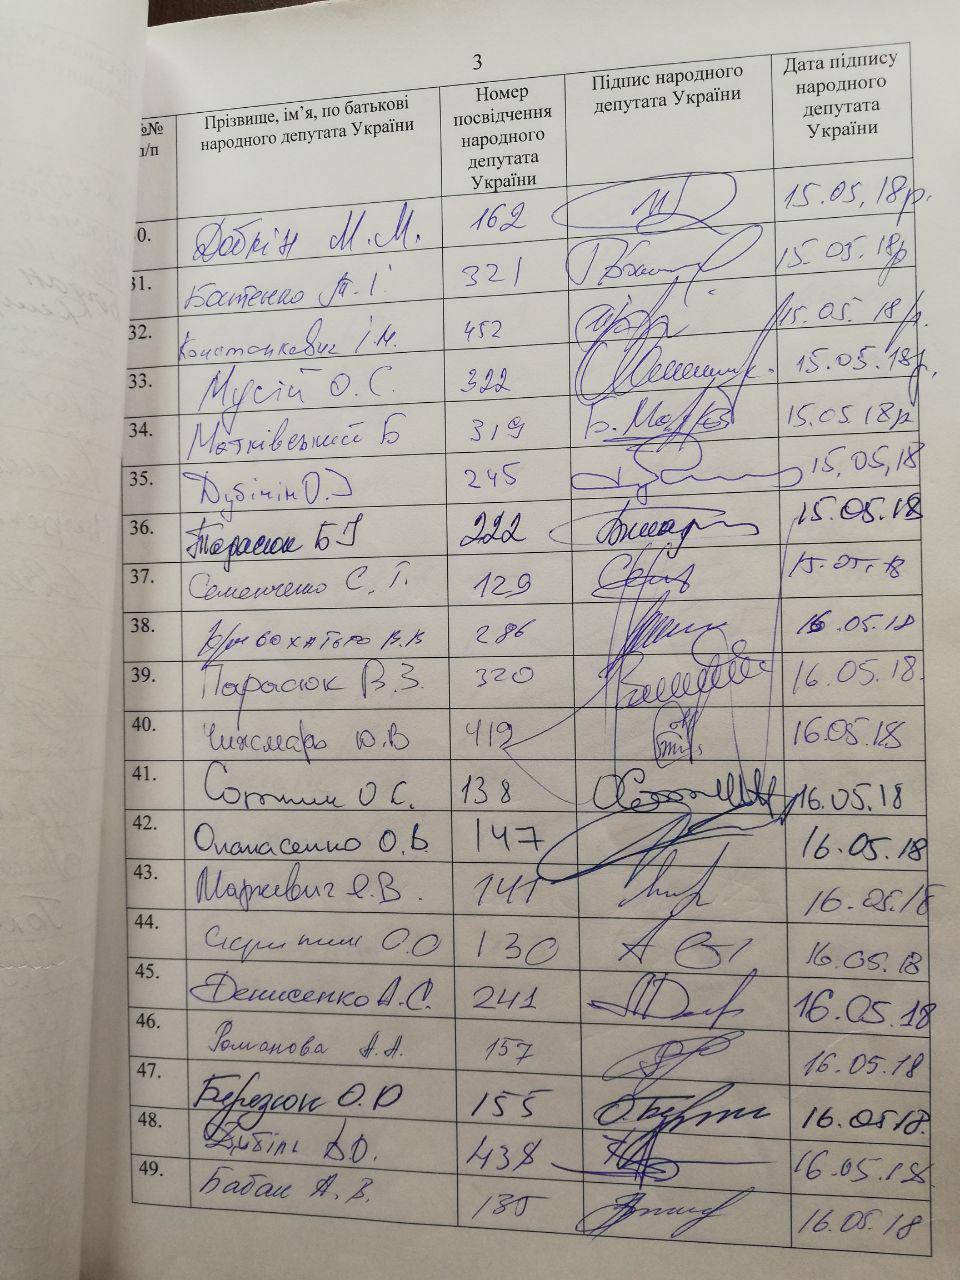 3
№№ п/п Прізвище, ім’я, по батькові народного депутата України Номер посвідчення народного депутата України Підпис народного депутата України Дата підпису народного депутата України
0. Добкін М.М. 162 15.05.18р.
31. Бостенко Т.І. 321 15.05.18р
32. Констанкевич І.М. 452 15.05.18р.
33. Мусій О.С. 322 15.05.18р.
34. Матківський Б 319 Б. 15.05.18р
35. Дубінін О.І 245 15.05.18
36. Тарасюк Б І 222 15.05.18
37. Семенченко С.І. 129 15.05.18
38. В.В 286 16.05.18
39. Парасюк В.З. 320 16.05.18.
40. Чижмарь Ю.В 419 16.05.18
41. Сотник О С. 138 16.05.18
42. Опанасенко О.В. 147 16.05.18
43. Маркевич Я.В. 141 16.05.18
44. О.О 130 16.05.18
45. Денисенко А.С. 241 16.05.18
46. Романова А.А. 157 16.05.18
47. Березюк О.Р 155 О.Березюк 16.05.18.
48. Дубіль В.О. 438 16.05.18.
49. Бабак А.В. 135 16.05.18